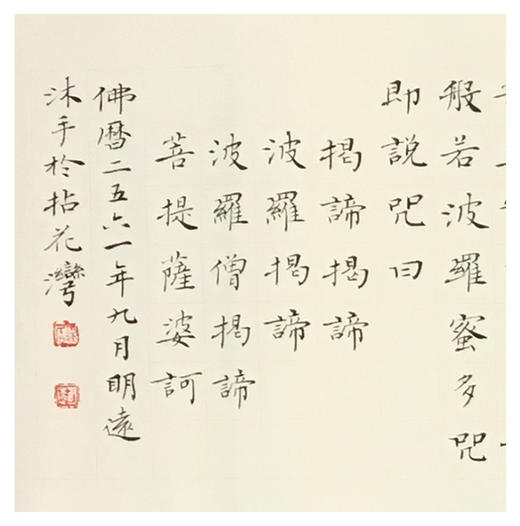 般若波羅蜜多咒
即説咒曰
揭諦揭諦
波羅揭諦
波羅僧揭諦
菩提薩婆訶
佛曆二五六一年九月明遠
沐手於拈花灣